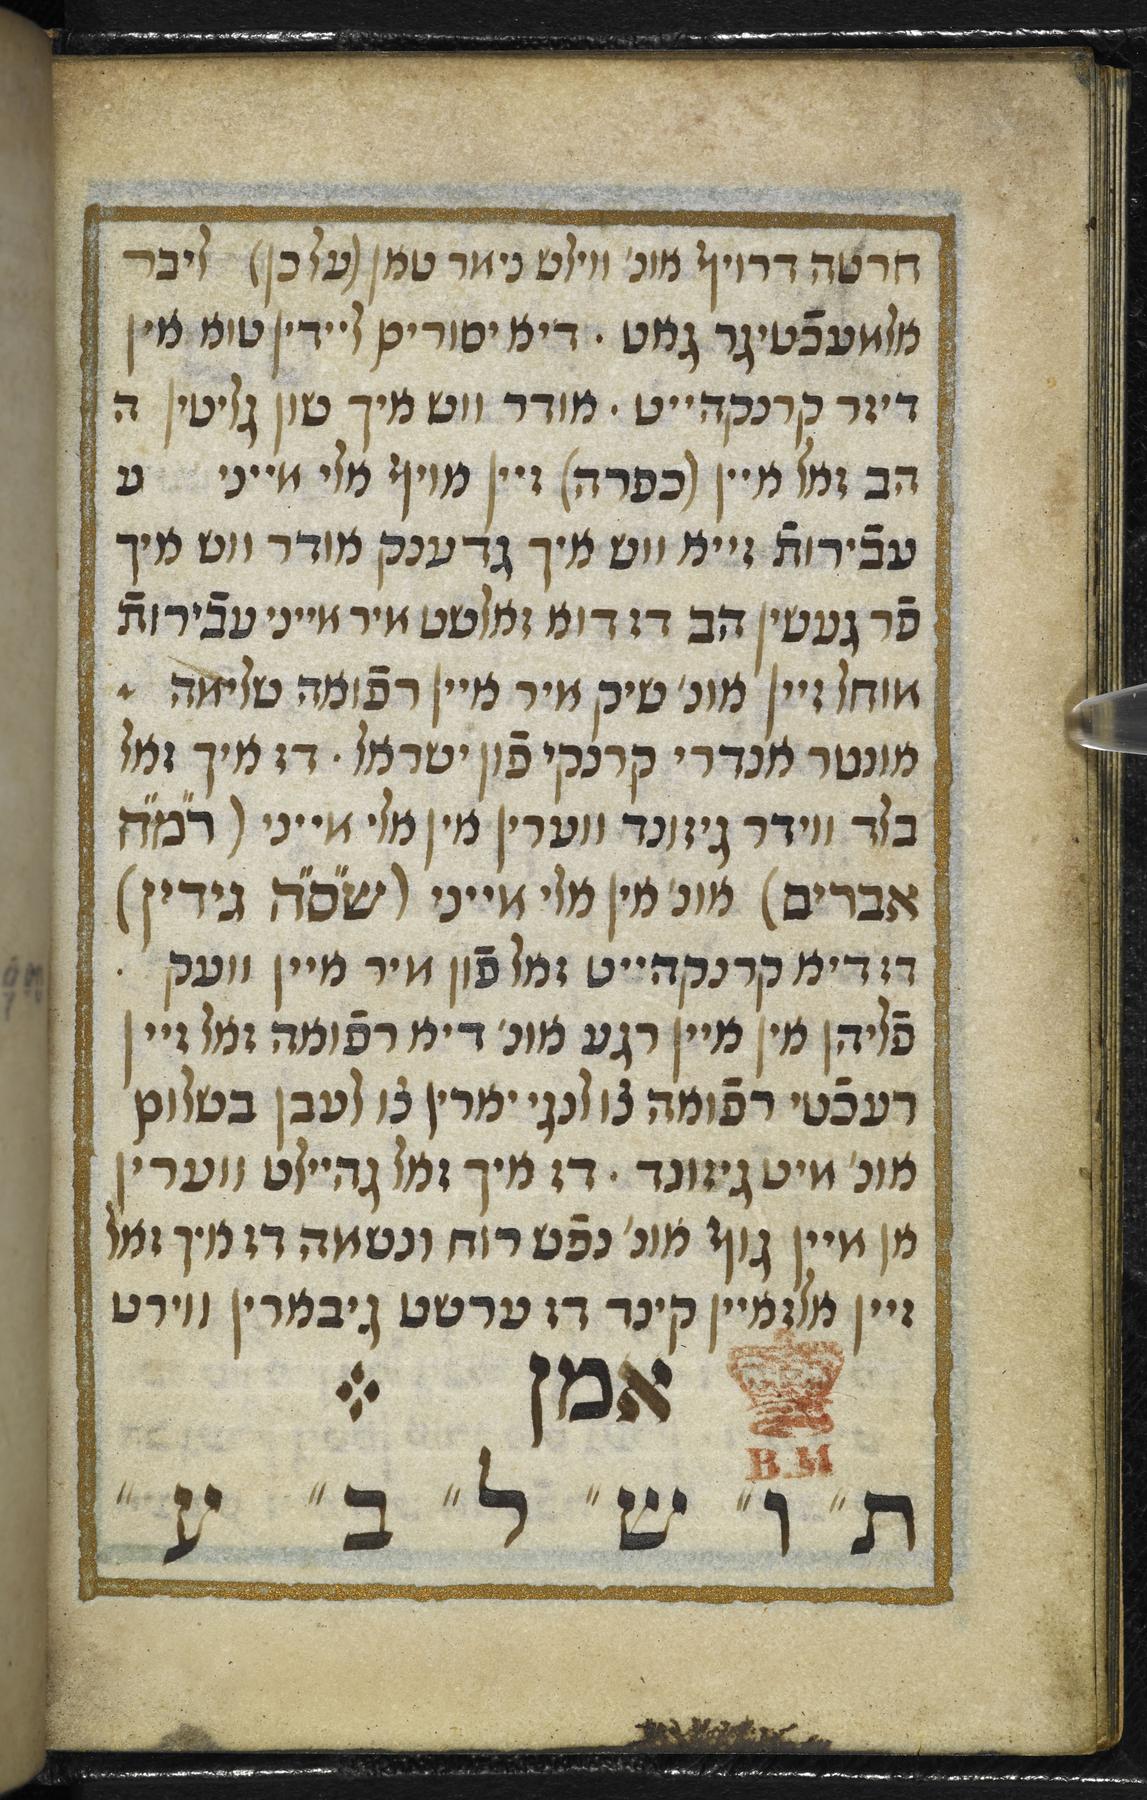 חרטה דרויף אונ׳ ווילש ניאר טאן (על כן) ליבר
אלמעכֿטיגר גאט . דיא יסורים ליידין טוא אין
דיזר קרנקהייט . אודר ווש איך טון גליטין ה
הב זאל מיין (כפרה) זיין אויף אלי מייני ע
עבֿירותֿ זייא ווש איך גדענק אודר ווש איך
פֿר געשין הב דז דוא זאלשט מיר מייני עבֿירותֿ
מוחל זיין אונ׳ שיק מיר מיין רפֿואה שלימה
אונטר אנדרי קרנקי פֿון ישראל . דז איך זאל
בלד ווידר גיזונד ווערין אין אלי מייני (רמ״ח
אברים) אונ׳ אין אלי מייני (שס״ה גידין)
דז דיא קרנקהייט זאל פֿון מיר אין וועק .
פֿליהן אין איין רגע אונ׳ דיא רפֿואה זאל זיין
רעכֿטי רפֿואה צו לנגי יארין צו לעבן בשלום
אונ׳ מיט גיזונד . דז איך זאל גהיילט ווערין
אן מיין גוף אונ׳ נפֿש רוח ונשמה דז איך זאל
זיין אלז איין קינד דז ערשט גיבארין ווירט
אמן
B.M
ת״ ו״ ש״ ל״ ב״ ע״